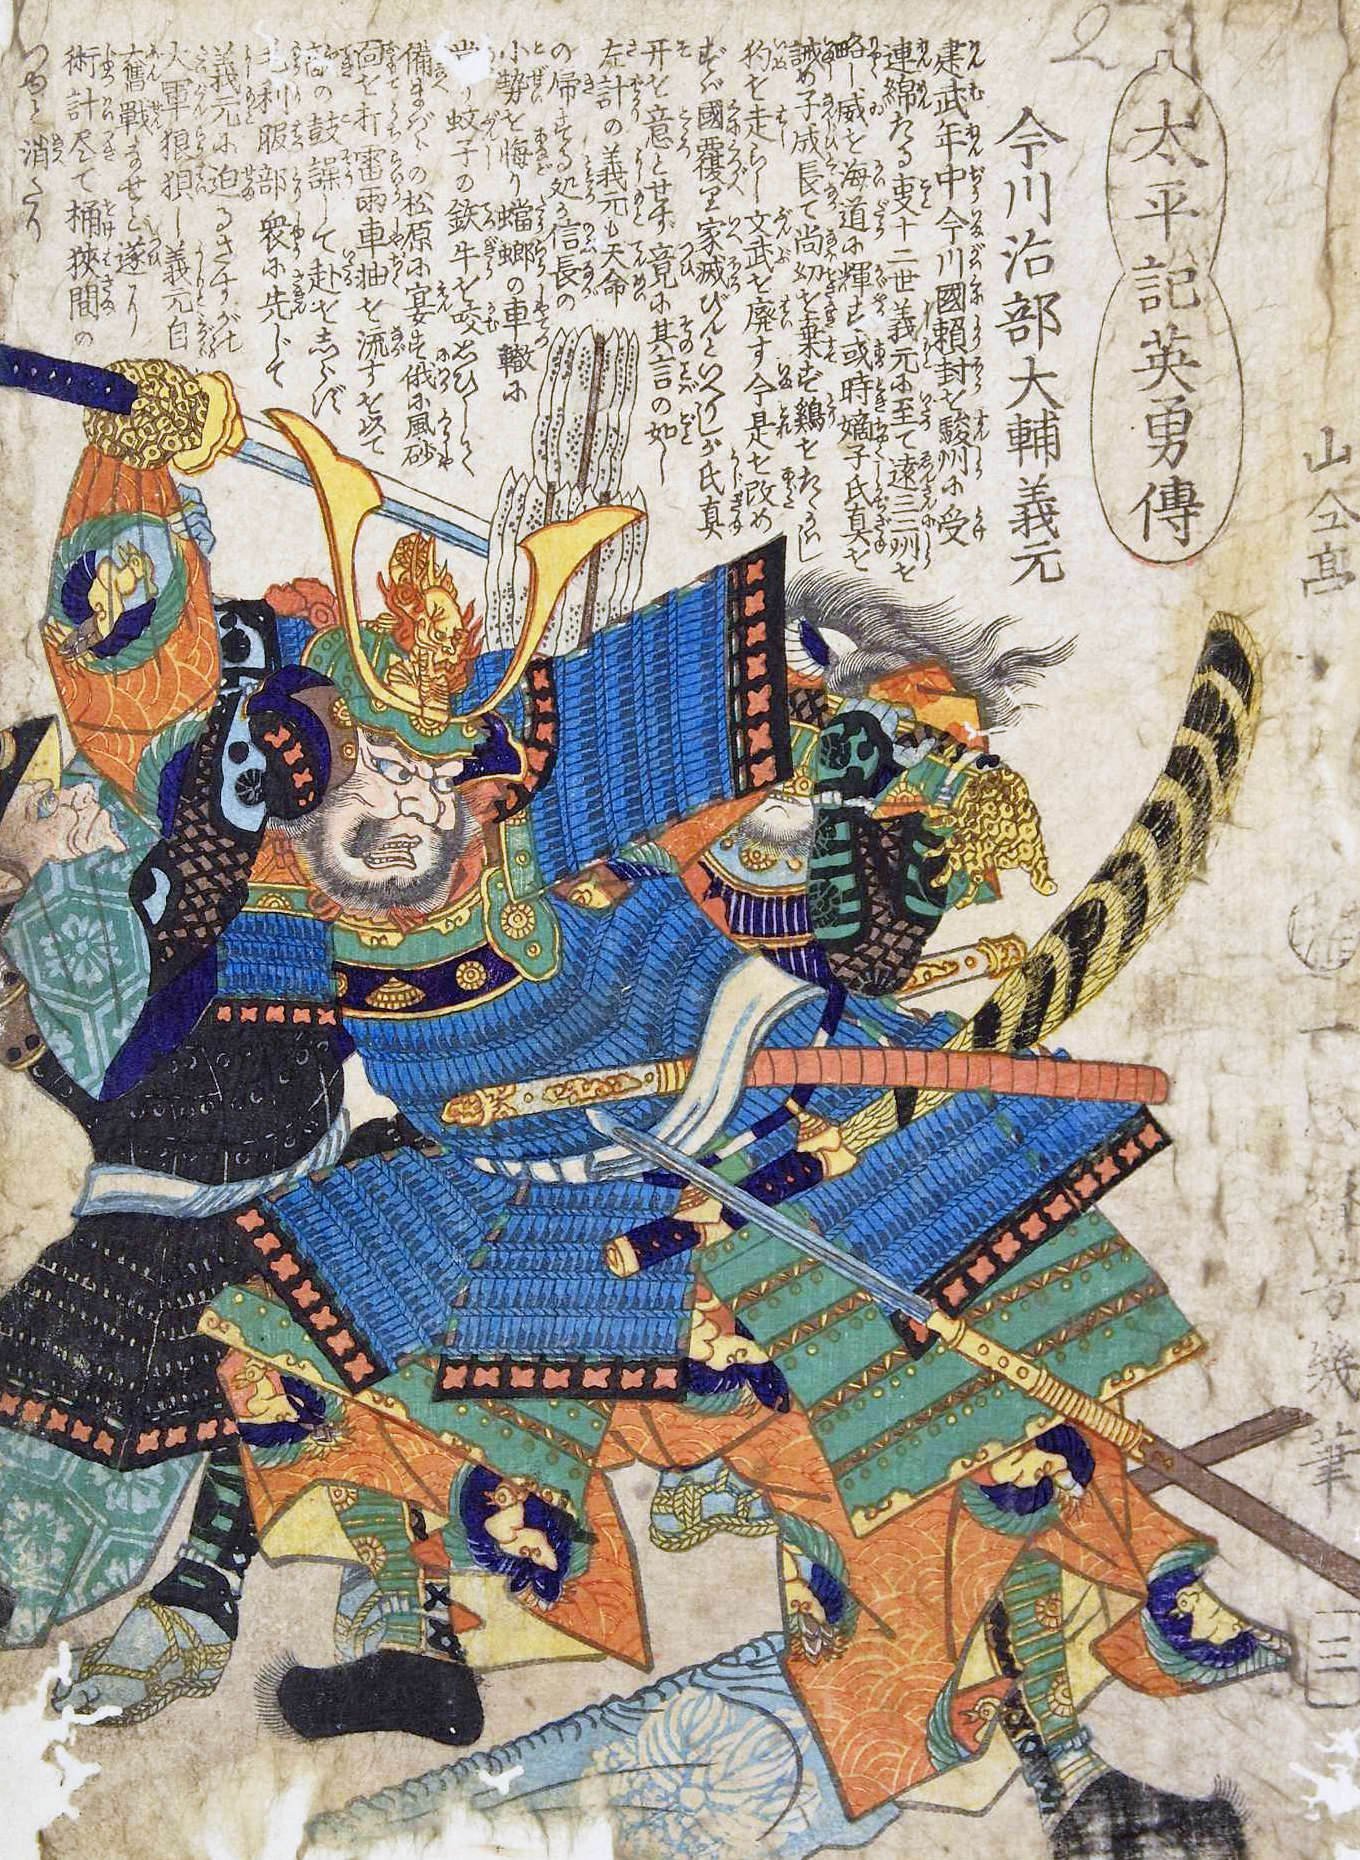 太平記英勇傳
今川治部大輔義元
建武年中今川國賴封を駿州に受
連綿たる事十二世義元に至て遠三二州を
略し威を海道に輝す或時嫡子氏真を
誡め子成長て尚幼を棄ず鶏をたゝかはし
狗を走らし文武を廃す今是を改め
ずば國覆り家滅びんといへりしが氏真
开を意とせず竟に其言の如し
左計の義元も天命
の帰する処か信長の
小勢を侮り蟷螂の車轍に
当り蚊子の鉄牛を咬
備まばらの松原に宴す俄に風砂
石を打雷雨車軸を流すを以て
の鼓譟して赴をしらず
毛利服部衆に先じて
義元に迫るさすがに
大軍狼狽し義元自
奮戦ませど遂に
術計尽て桶狭間の
つゆと消たり
山々亭
一蕙斎芳幾筆
三
2